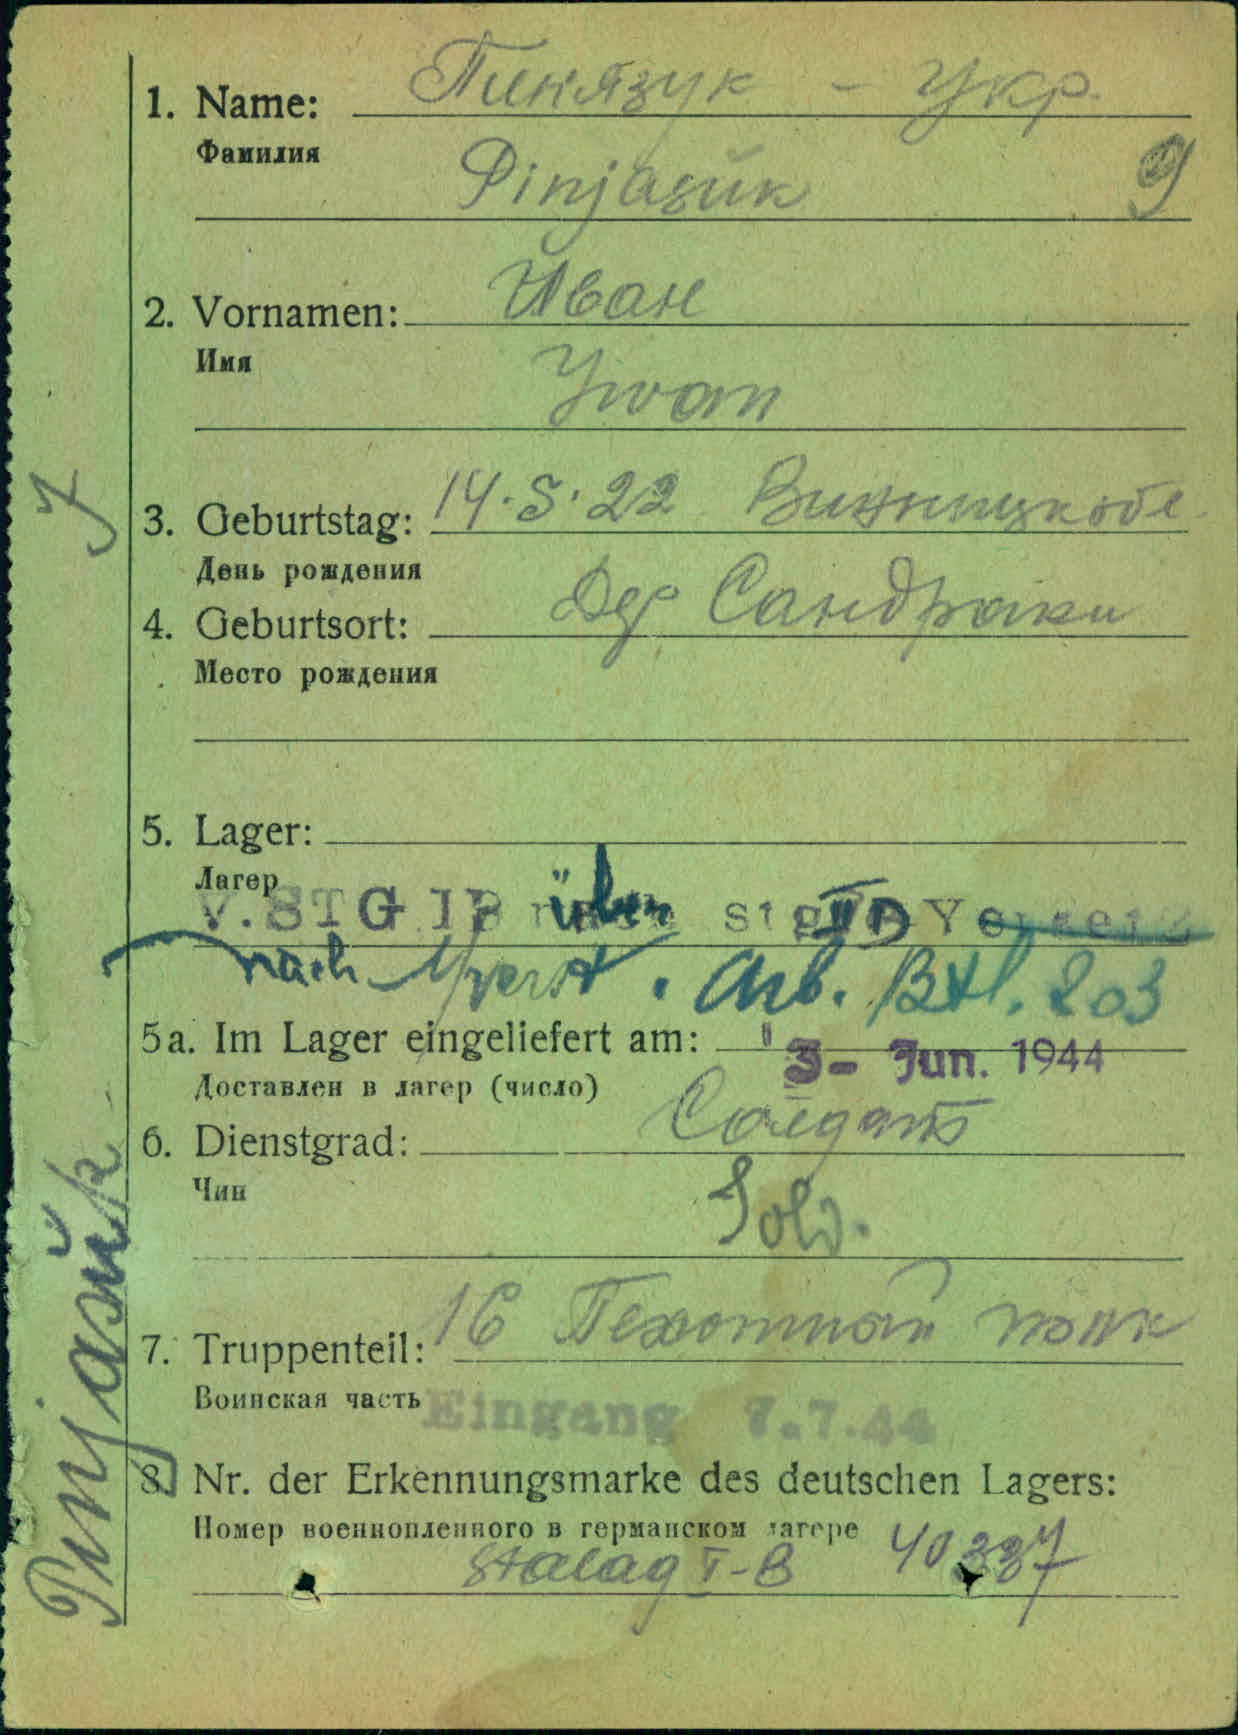 Пинязук – Укр.
1. Name:
Фамилия
Pinjasŭk
9
Иван
2. Vornamen:
Имя
Ywan
14.5.22
3. Geburtstag:
День рождения
Дер Сандраки
4. Geburtsort:
Место рождения
5. Lager:
Лагер
V. STG IB über Stg II D
nach Arb. Btl. 203
5a. Im Lager eingeliefert am: 3- Jun. 1944
Доставлен в лагер (число)
Солдат
6. Dienstgrad:
Чин
Sold.
16 Пехотнай полк
7. Truppenteil:
Воинская часть
Eingang 7.7.44
8. Nr. der Erkennungsmarke des deutschen Lagers:
Номер военнопленного в германском лагере
Stalag I-B 40337
Pinjasŭk